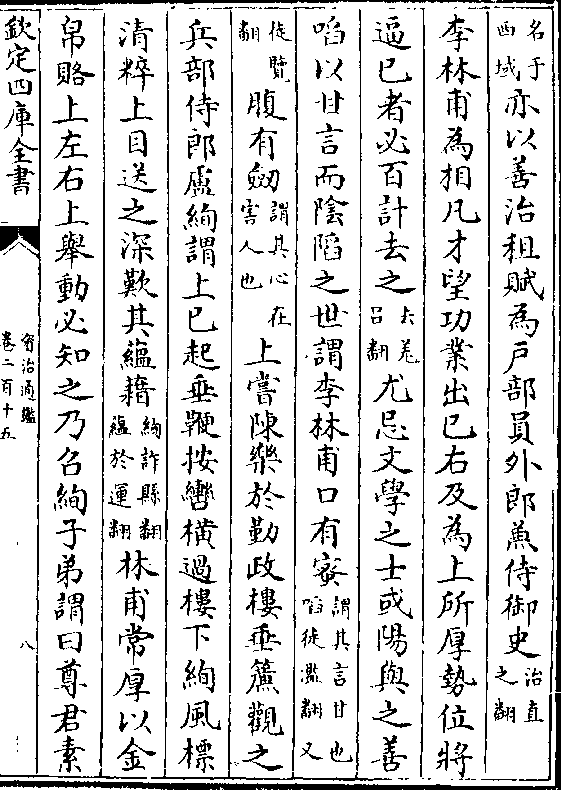 名于
西域
亦以善治租賦為戶部員外郎兼侍御史
治直
之翻
李林甫為相凡才望功業出已右及為上所厚勢位將
逼已者必百計去之
去羌
呂翻
尤忌文學之士或陽與之善
啗以甘言而陰陷之世謂李林甫口有蜜
謂其言甘也
啗徒濫翻又
徒覽
翻
腹有劒
謂其心在
害人也
上嘗陳樂於勤政樓垂簾觀之
兵部侍郎盧絢謂上已起垂鞭按轡橫過樓下絢風標
清粹上目送之深歎其蘊藉
絢許縣翻
蘊於運翻
林甫常厚以金
帛賂上左右上舉動必知之乃召絢子弟謂曰尊君素
欽定四庫全書
資治通鑑
卷二百十五
八